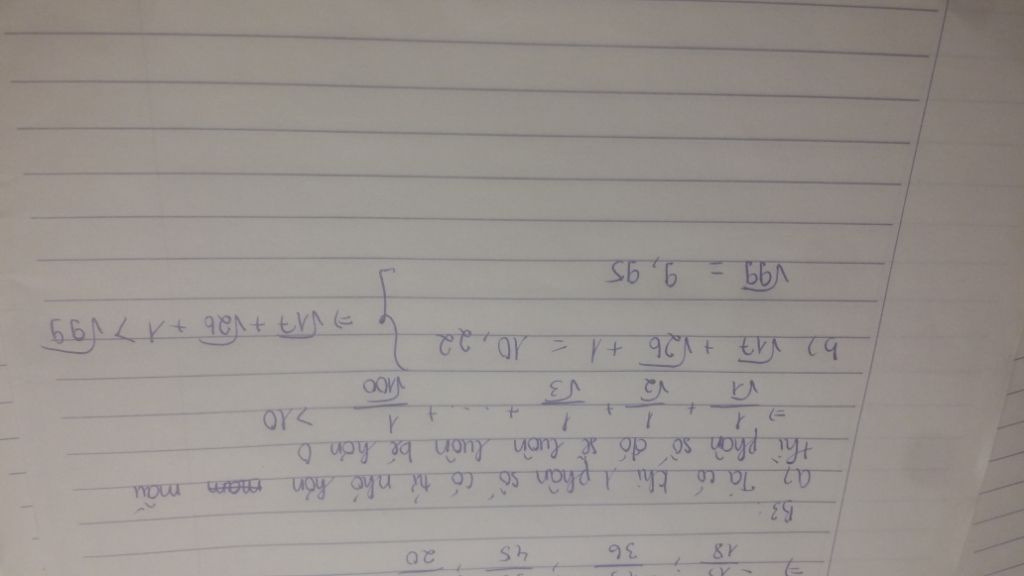 18 ; 36 ; 45 ; 20
B3:
a) Ta có khi 1 phân số có tử nhỏ hơn mẫu
thì phân số đó sẽ luôn bé hơn 0
⇒ 1/√1 + 1/√2 + 1/√3 + ... + 1/√100 > 10
b) √17 + √26 + 1 = 10,22
√99 = 9,95
⇒ √17 + √26 + 1 > √99